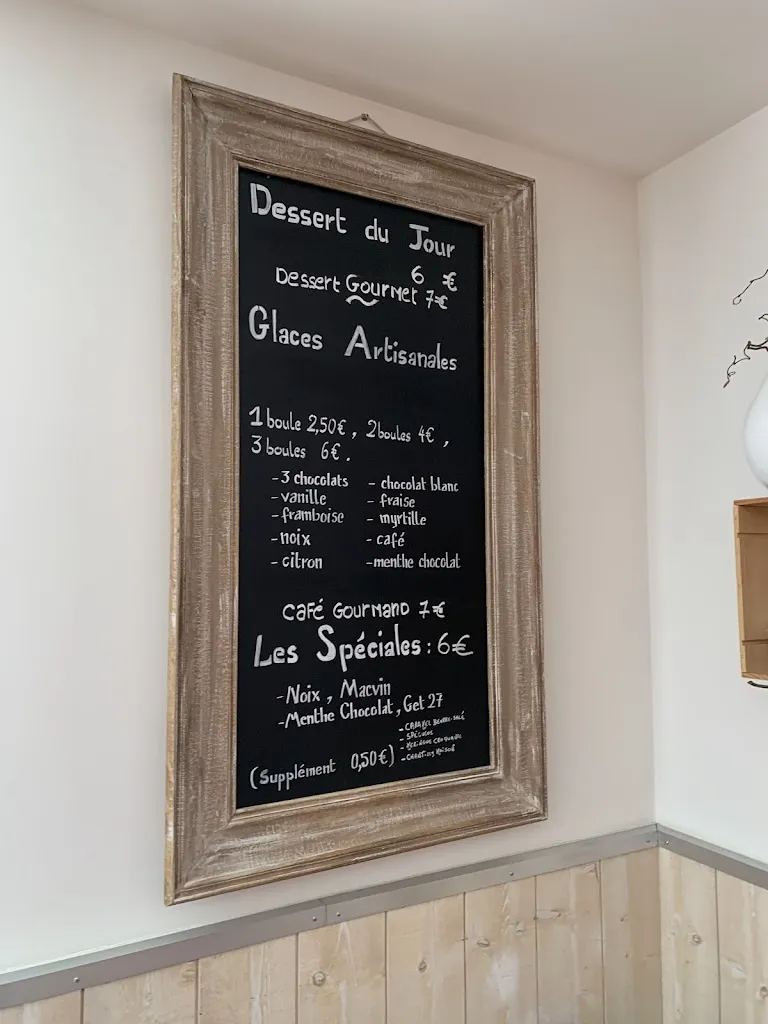 Dessert du Jour
6 €
Dessert Gourmet 7€
Glaces Artisanales
1 boule 2,50€, 2 boules 4€,
3 boules 6€.
- 3 chocolats - chocolat blanc
- vanille - fraise
- framboise - myrtille
- noix - café
- citron - menthe chocolat
Café Gourmand 7€
Les Spéciales : 6€
- Noix, Macvin
- Menthe Chocolat, Get 27
- CARAMEL BEURRE SALÉ
- SPÉCULOS
(Supplément 0,50€)
- CHANTILLY MAISON